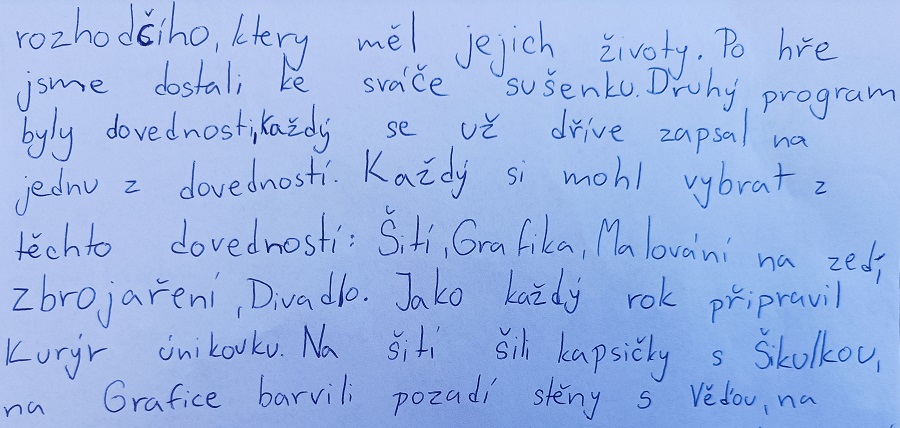 rozhodčího, ktery měl jejich životy. Po hře
jsme dostali ke sváče sušenku. Druhý program
byly dovednosti, každý se už dříve zapsal na
jednu z dovedností. Každý si mohl vybrat z
těchto dovedností: Šití, Grafika, Malování na zeď,
zbrojaření, Divadlo. Jako každý rok připravil
Kurýr únikovku. Na šití šili kapsičky s Školkou,
na Grafice barvili pozadí stěny s Věďou, na